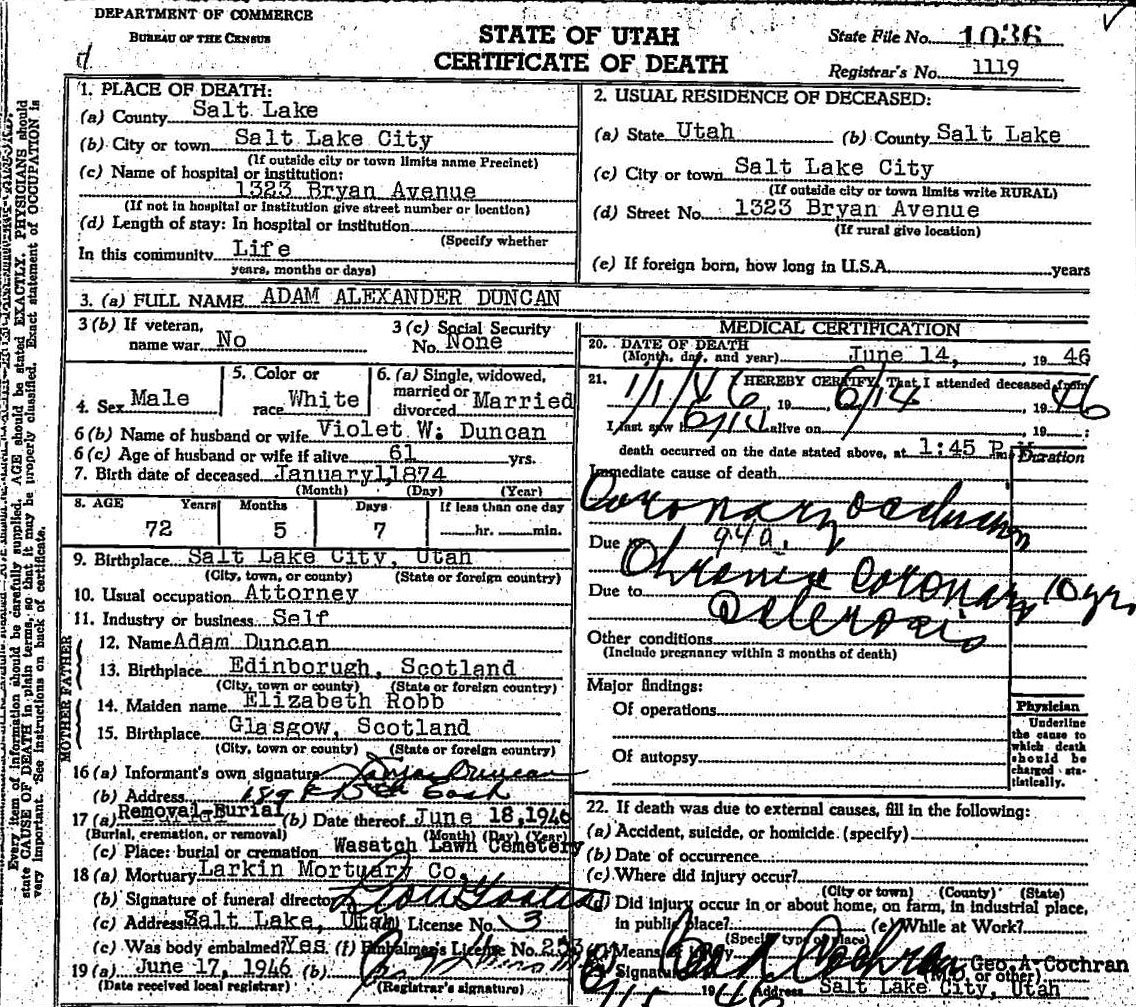 DEPARTMENT OF COMMERCE
BUREAU OF THE CENSUS
STATE OF UTAH
CERTIFICATE OF DEATH
State File No. 1036
Registrar's No. 1119
Every item of information should be carefully supplied. AGE should be stated EXACTLY. PHYSICIANS should
state CAUSE OF DEATH in plain terms, so that it may be properly classified. Exact statement of OCCUPATION is
very important. See instructions on back of certificate.
1. PLACE OF DEATH:
(a) County Salt Lake
(b) City or town Salt Lake City
(If outside city or town limits name Precinct)
(c) Name of hospital or institution:
1323 Bryan Avenue
(If not in hospital or institution give street number or location)
(d) Length of stay: In hospital or institution
(Specify whether
In this community Life
years, months or days)
2. USUAL RESIDENCE OF DECEASED:
(a) State Utah (b) County Salt Lake
(c) City or town Salt Lake City
(If outside city or town limits write RURAL)
(d) Street No. 1323 Bryan Avenue
(If rural give location)
(e) If foreign born, how long in U.S.A. years
3. (a) FULL NAME ADAM ALEXANDER DUNCAN
3 (b) If veteran,
name war No
3 (c) Social Security
No. None
4. Sex Male
5. Color or
race White
6. (a) Single, widowed,
married or
divorced Married
6 (b) Name of husband or wife Violet W. Duncan
6 (c) Age of husband or wife if alive 61 yrs.
7. Birth date of deceased January 1, 1874
(Month) (Day) (Year)
8. AGE Years Months Days If less than one day
72 5 7 hr. min.
9. Birthplace Salt Lake City, Utah
(City, town, or county) (State or foreign country)
10. Usual occupation Attorney
11. Industry or business Self
MOTHER FATHER
12. Name Adam Duncan
13. Birthplace Edinborugh, Scotland
(City, town or county) (State or foreign country)
14. Maiden name Elizabeth Robb
15. Birthplace Glasgow, Scotland
(City, town or county) (State or foreign country)
16 (a) Informant's own signature Duncan
(b) Address East
17 (a) Removal-Burial (b) Date thereof June 18, 1946
(Burial, cremation, or removal) (Month) (Day) (Year)
(c) Place: burial or cremation Wasatch Lawn Cemetery
18 (a) Mortuary Larkin Mortuary Co.
(b) Signature of funeral director
(c) Address Salt Lake, Utah License No. 3
(c) Was body embalmed? Yes (f) Embalmer's License No. 253
19 (a) June 17, 1946 (b)
(Date received local registrar) (Registrar's signature)
MEDICAL CERTIFICATION
20. DATE OF DEATH
(Month, day, and year) June 14, 1946
21. I HEREBY CERTIFY, That I attended deceased from
1/1/46, 19 , 6/14, 1946
I last saw h 6/14 alive on , 19 ;
death occurred on the date stated above, at 1:45 P.m. Duration
Immediate cause of death
Coronary occlusion
Due to 94a.
Chronic Coronary 10 yrs
Due to Sclerosis
Other conditions
(Include pregnancy within 3 months of death)
Major findings:
Of operations
Of autopsy
Physician
Underline
the cause to
which death
should be
charged sta-
tistically.
22. If death was due to external causes, fill in the following:
(a) Accident, suicide, or homicide (specify)
(b) Date of occurrence
(c) Where did injury occur?
(City or town) (County) (State)
(d) Did injury occur in or about home, on farm, in industrial place,
in public place? (e) While at Work?
(Specify type of place)
Means of injury
Signature Geo A Cochran Geo. A. Cochran
or other)
1946 Address Salt Lake City, Utah